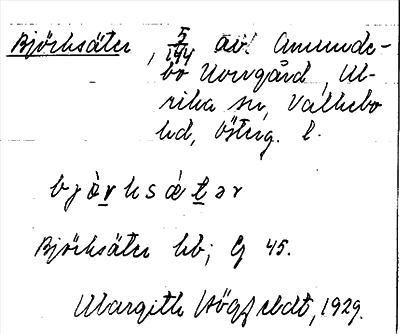 Björksäter, 5/144 av Amunde-
bo Norrgård, Ul-
rika sn, Valkebo
hd, Österg. l.
bjä̀rksátər
Björksäter hb; G 45.
Margith Högfeldt, 1929.